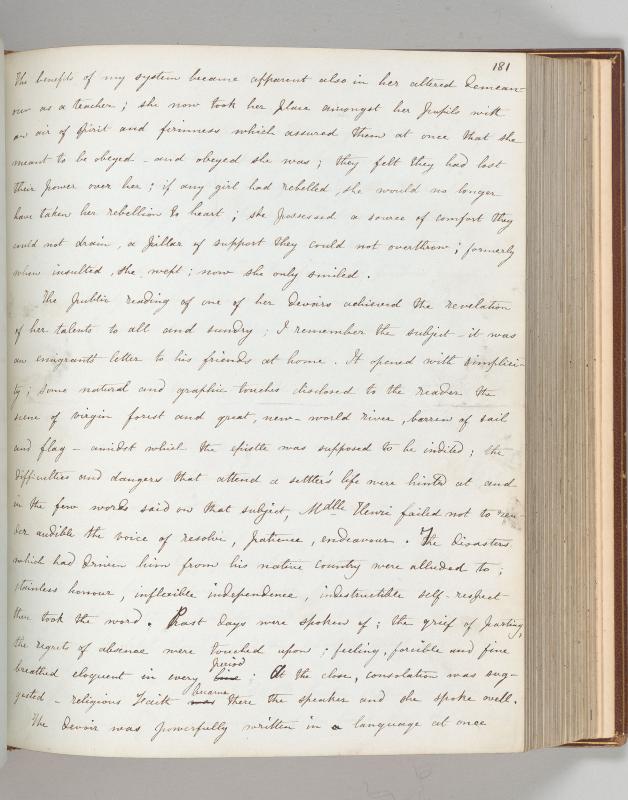 181
The benefits of my system became apparent also in her altered demean-
our as a teacher; she now took her place amongst her pupils with
an air of spirit and firmness which assured them at once that she
meant to be obeyed - and obeyed she was; they felt they had lost
their power over her; if any girl had rebelled, she would no longer
have taken her rebellion to heart; she possessed a source of comfort they
could not drain, a pillar of support they could not overthrow; formerly
when insulted, she wept; now she only smiled.
The public reading of one of her devoirs achieved the revelation
of her talents to all and sundry; I remember the subject - it was
an emigrants letter to his friends at home. It opened with simplici-
ty; some natural and graphic touches disclosed to the reader the
scene of virgin forest and great, new-world river, barren of sail
and flag - amidst which the epistle was supposed to be indited; the
difficulties and dangers that attend a settler's life were hinted at and
in the few words said on that subject, Mdlle Henri failed not to ren-
der audible the voice of resolve, patience, endeavour. The disasters
which had driven him from his native country were alluded to;
stainless honour, inflexible independence, indestructible self-respect
there took the word. Past days were spoken of; the grief of parting,
the regrets of absence were touched upon; feeling, forcible and fine
period
breathed eloquent in every line; At the close, consolation was sug-
became
gested - religious Faith was there the speaker and she spoke well.
The devoir was powerfully written in a language at once